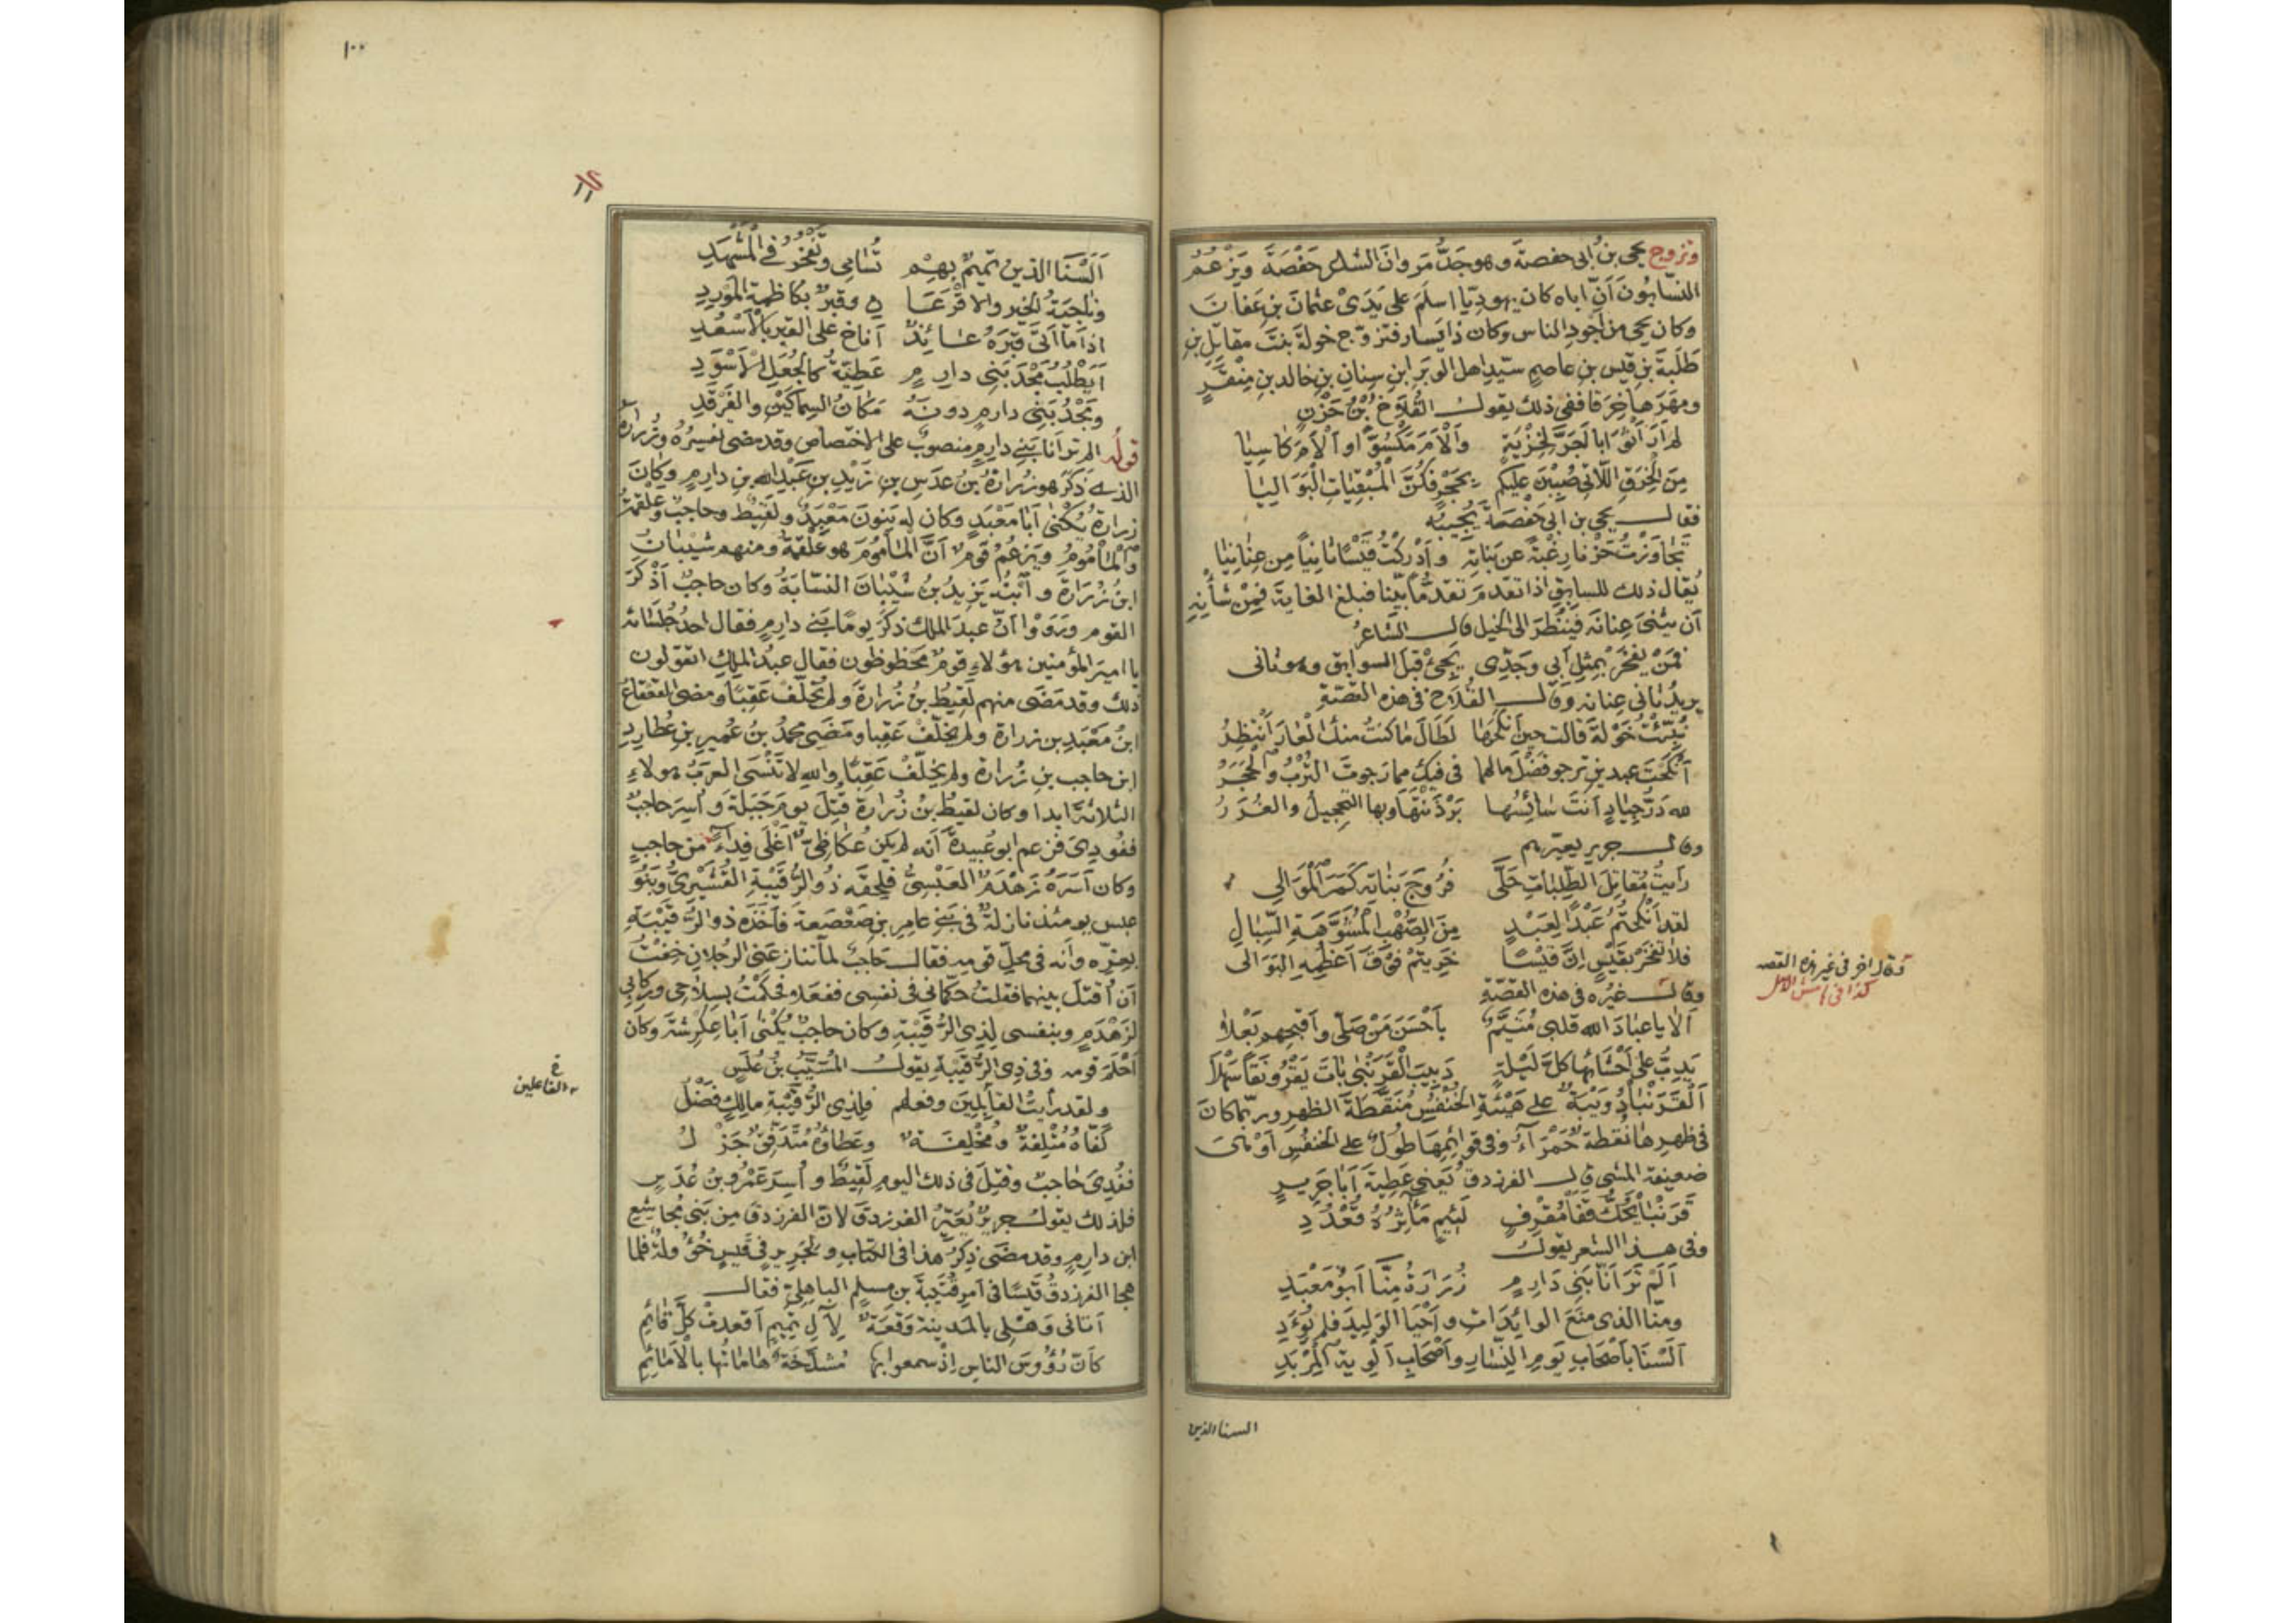 وتزوج يحيى بن ابى حفصة وهو جَدُّ مَروانَ الشاعر حَفْصَةَ ويَزْعُمُ
النسّابُونَ اَنّ اباه كان يهوديّا اسلَمَ على يَدَىْ عثمانَ بنِ عَفّانَ
وكان يحيى من اَجْودِ الناس وكان ذا يَسار فتزوّج خولةَ بنتَ مقاتِلِ بنِ
طَلَبةَ بنِ قيس بنِ عاصِمٍ سيّدِ اهل الوبَرِ ابنِ سِنانِ بنِ خالد بنِ مِنْقَرٍ
ومهَرَها خِرَقا ففى ذلك يقول القُلاخُ بْنُ حَزْنٍ
لم اَرَ اَثْوَابا اَجَرَّ لِخِزْيَةٍ وَاَلْاَمَ مَكْسُوًّا او اَلْاَمَ كاسِيَا
مِنَ الخِرَقِ اللّاتى صُبِبْنَ عليكم بِحَجْرٍ فكُنَّ الْمُبْقِيَاتِ الْبَوَالِيَا
فقال يحيى بن ابى حَفْصَةَ يُجيبُه
تجاوَزْتُ حَزْنا رغْبَةً عن بَناتِهِ واَدْركْتُ قَيْسًا ثانِيًا من عِنانِيَا
يُقال ذلك للسابقِ اذا تقدمَ تقدّمًا بيّنا فبلغ الغايةَ فمِنْ شأنِهِ
اَن يثنىَ عِنانَه فيَنْظُرَ الى الخيل قال الشاعر
فمَنْ يَفْخَرْ بمِثْلِ اَبى وجَدِّى يَجِئْ قبلَ السوابق وهو ثانى
يريدُ ثانى عِنانه وقال القُلاخ فى هذه القصّة
نُبِّئْتُ خَوْلَةَ قالت حين اَنكَحَها لَطَالَ ما كنتُ منك الْعارَ اَنْتَظِرُ
اَنْكَحْتَ عبدينِ ترجو فضْلَ مالهما فى فيك مما رجوتَ التُرْبُ والحَجَرُ
لله دَرُّ جِيادٍ اَنتَ سائِسُها بَرْذَنْتَها وبها التحجيلُ والغُرَرُ
وقال جرير يعيّرهم
رَاَيتُ مُقاتِلَ الطَلَباتِ حَلَّى فُرُوجَ بَناتِه كَمَرَ الْمَوَالِى
لقد اَنْكَحْتُمُ عَبْدًا لِعَبْدٍ مِنَ الصُهْبِ الْمُشَوَّهَةِ السِّبَالِ
فلا تَفْخَرْ بقَيْسٍ اِنّ قَيْسًا خَرِيتُمْ فَوْقَ اَعْظُمِهِ البَوَالى
وقال غيرُه فى هذه القصّةِ
اَلا يا عبادَ الله قلبى مُتَيَّمٌ بِاَحْسَنِ مَنْ صَلَّى واَقْبَحِهِم بَعْلَا
يَدِبُّ على اَحْشائِها كلَّ لَيْلةٍ دَبِيبَ الْقَرَنْبَى باتَ يَقْرُو نَقًا سَهْلَا
اَلْقَرَنْبَا دُوَيْبَةٌ على هَيْئَةِ الخُنْفُسِ مُنَقَّطَةُ الظهرِ وربّما كانَ
فى ظهرِها نُقطة حَمْرَآءُ وفى قوائمِها طُولٌ على الخنفُسِ اَوْ هىَ
ضعيفة المشى قال الفرزدق يعنى عَطِيّةَ اَبَا جَرِيرٍ
قَرَنْبَا يَحُكُّ قَفَا مُقْرِفٍ لَئِيمٍ مَآثِرُهُ قُعْدُدِ
وفى هذا الشعر يقول
اَلَمْ تَرَ اَنّا بَنِى دَارِمٍ زُرَارَةُ مِنّا اَبُو مَعْبَدِ
ومنّا الذى مَنَعَ الوائداتِ واَحْيَا الوَلِيدَ فلم تُوءَدِ
اَلَسْنَا باَصْحَابِ يَومِ النِسَارِ واَصْحَابِ اَلْوِيَةِ الْمِرْبَدِ
السنا الذين
وقال اخر فى غير هذه القصه
كذا فى هامش الاصل
١٠٠
اَلَسْنَا الذين تميمٌ بِهِمْ تُسَامِى وتَفْخَرُ فى الْمَشْهَدِ
وناجِيَةُ الخيرِ والاقْرَعَا ن وقبرٌ بكاظِمةِ المَوْرِدِ
اذا ما اَتَى قَبْرَهُ عائِذٌ اَناخ على القبرِ بالْاَسْعُدِ
اَيَطْلُبُ مَجْدَ بَنِى دارِمٍ عَطِيّةُ كالجُعَلِ الْاَسْوَدِ
ومَجْدُ بَنِى دارِمٍ دونَهُ مَكانُ السِماكَيْنِ والفَرْقَدِ
قوله الم تر انا بَنِى دارِمٍ منصوبٌ على الاختصاص وقد مضى تفسيرُه وزُرارة
الذى ذَكَرَ هو زُرارةُ بنُ عدَسِ بنِ زَيْدِ بنِ عبْدِ الله بنِ دارِمٍ وكانَ
زرارة يُكْنى اَبا مَعْبَدٍ وكان له بَنونَ مَعْبَدٌ ولَقيطٌ وحاجِبٌ وعَلْقَمةُ
والْمَاْمُومُ ويَزعُمُ قومٌ اَنّ المَاْمُومَ هو علقمةُ ومنهم شَيْبانُ
ابنُ زُرارَةَ وابْنُه يَزيدُ بنُ شَيْبانَ النسّابَةُ وكان حاجبٌ اَذْكَرَ
القوم ورَوَوْا اَنّ عبدَ الملك ذكرَ يومًا بَنِى دارِمٍ فقال احدُ جُلَسائه
يا اميرَ المؤمنين هؤلاءِ قومٌ مَحْظوظون فقال عبدُ الملكِ اتقولون
ذلك وقد مَضَى منهم لَقيطُ بنُ زُرارةَ ولم يُخَلِّفْ عَقِبًا ومضى القعقاعُ
ابنُ مَعْبَدِ بن زرارة ولم يُخَلِّفْ عَقِبا ومَضَى محمدُ بنُ عُمَيرِ بنِ عُطارِدِ
ابن حاجب بنِ زُرارة ولم يُخلِّفْ عَقِبًا والله لا تَنْسَى العربُ هؤلاءِ
الثلاثةَ ابدا وكان لقيطُ بنُ زُرارة قُتِلَ يومَ جَبَلةَ واُسِرَ حاجبٌ
ففُودِىَ فزعم ابو عُبيدة اَنه لم يكن عُكاظِىٌّ اَغْلَى فِداءً من حاجبٍ
وكان اَسَرَهُ زَهْدَمٌ العَبْسِىُّ فلحِقَه ذو الرُّقَيْبةِ القُشَيْرِىُّ وبَنُو
عبس يومئذ نازلةٌ فى بَنِى عامِرِ بنِ صَعْصَعةَ فاَخَذَه ذو الرُّقَيْبةِ
بعِزِّه وانه فى محلِّ قومه فقال حاجبٌ لمّا تنازعنى الرجلانِ خِفْتُ
اَن اُقْتَلَ بينهما فقلتُ حَكِّمانى فى نفسى ففعلا فحكَمْتُ بسِلاحى وركابى
لزَهْدَمٍ وبنفسى لِذِى الرُّقَيْبةِ وكان حاجبٌ يُكْنى اَبا عِكْرِشةَ وكان
اَحْلَمَ قومه وفى ذِى الرُّقَيْبةِ يقول المُسَيَّبُ بنُ عَلَسٍ
ولقد رأيتُ القائِلِينَ وفعلَهم فلِذِى الرُّقَيْبةِ مالِكٍ فَضْلُ
كَفّاهُ مُتْلِفةٌ ومُخْلِفَةٌ وعَطاؤُه مُتَدَفِّقٌ جَزْلُ
ففُدِىَ حاجبٌ وقُتِلَ فى ذلك اليومِ لَقِيطٌ واُسِرَ عَمْرُو بنُ عُدَسٍ
فلذلك يقول جريرٌ يُعَيّرُ الفرزدقَ لانّ الفرزدقَ من بَنى مُجاشِع
ابن دارِمٍ وقد مضَى ذِكرُ هذا فى الكتابِ ولجريرٍ فى قَيسٍ خُؤُولةٌ فلما
هجا الفرزدقُ قَيْسًا فى اَمرِ قُتَيْبةَ بن مسلم الباهِلِىّ فقال
اَتانى وَاَهْلِى بالمدينة وَقعَةٌ لِآلِ تَمِيمٍ اَقعدَتْ كلَّ قائِمِ
كاَنّ رُؤُوسَ الناسِ اِذْ سمعوا بها مُشَدَّخَةٌ هاماتُها بالْاَمائِمِ
الفاعلين